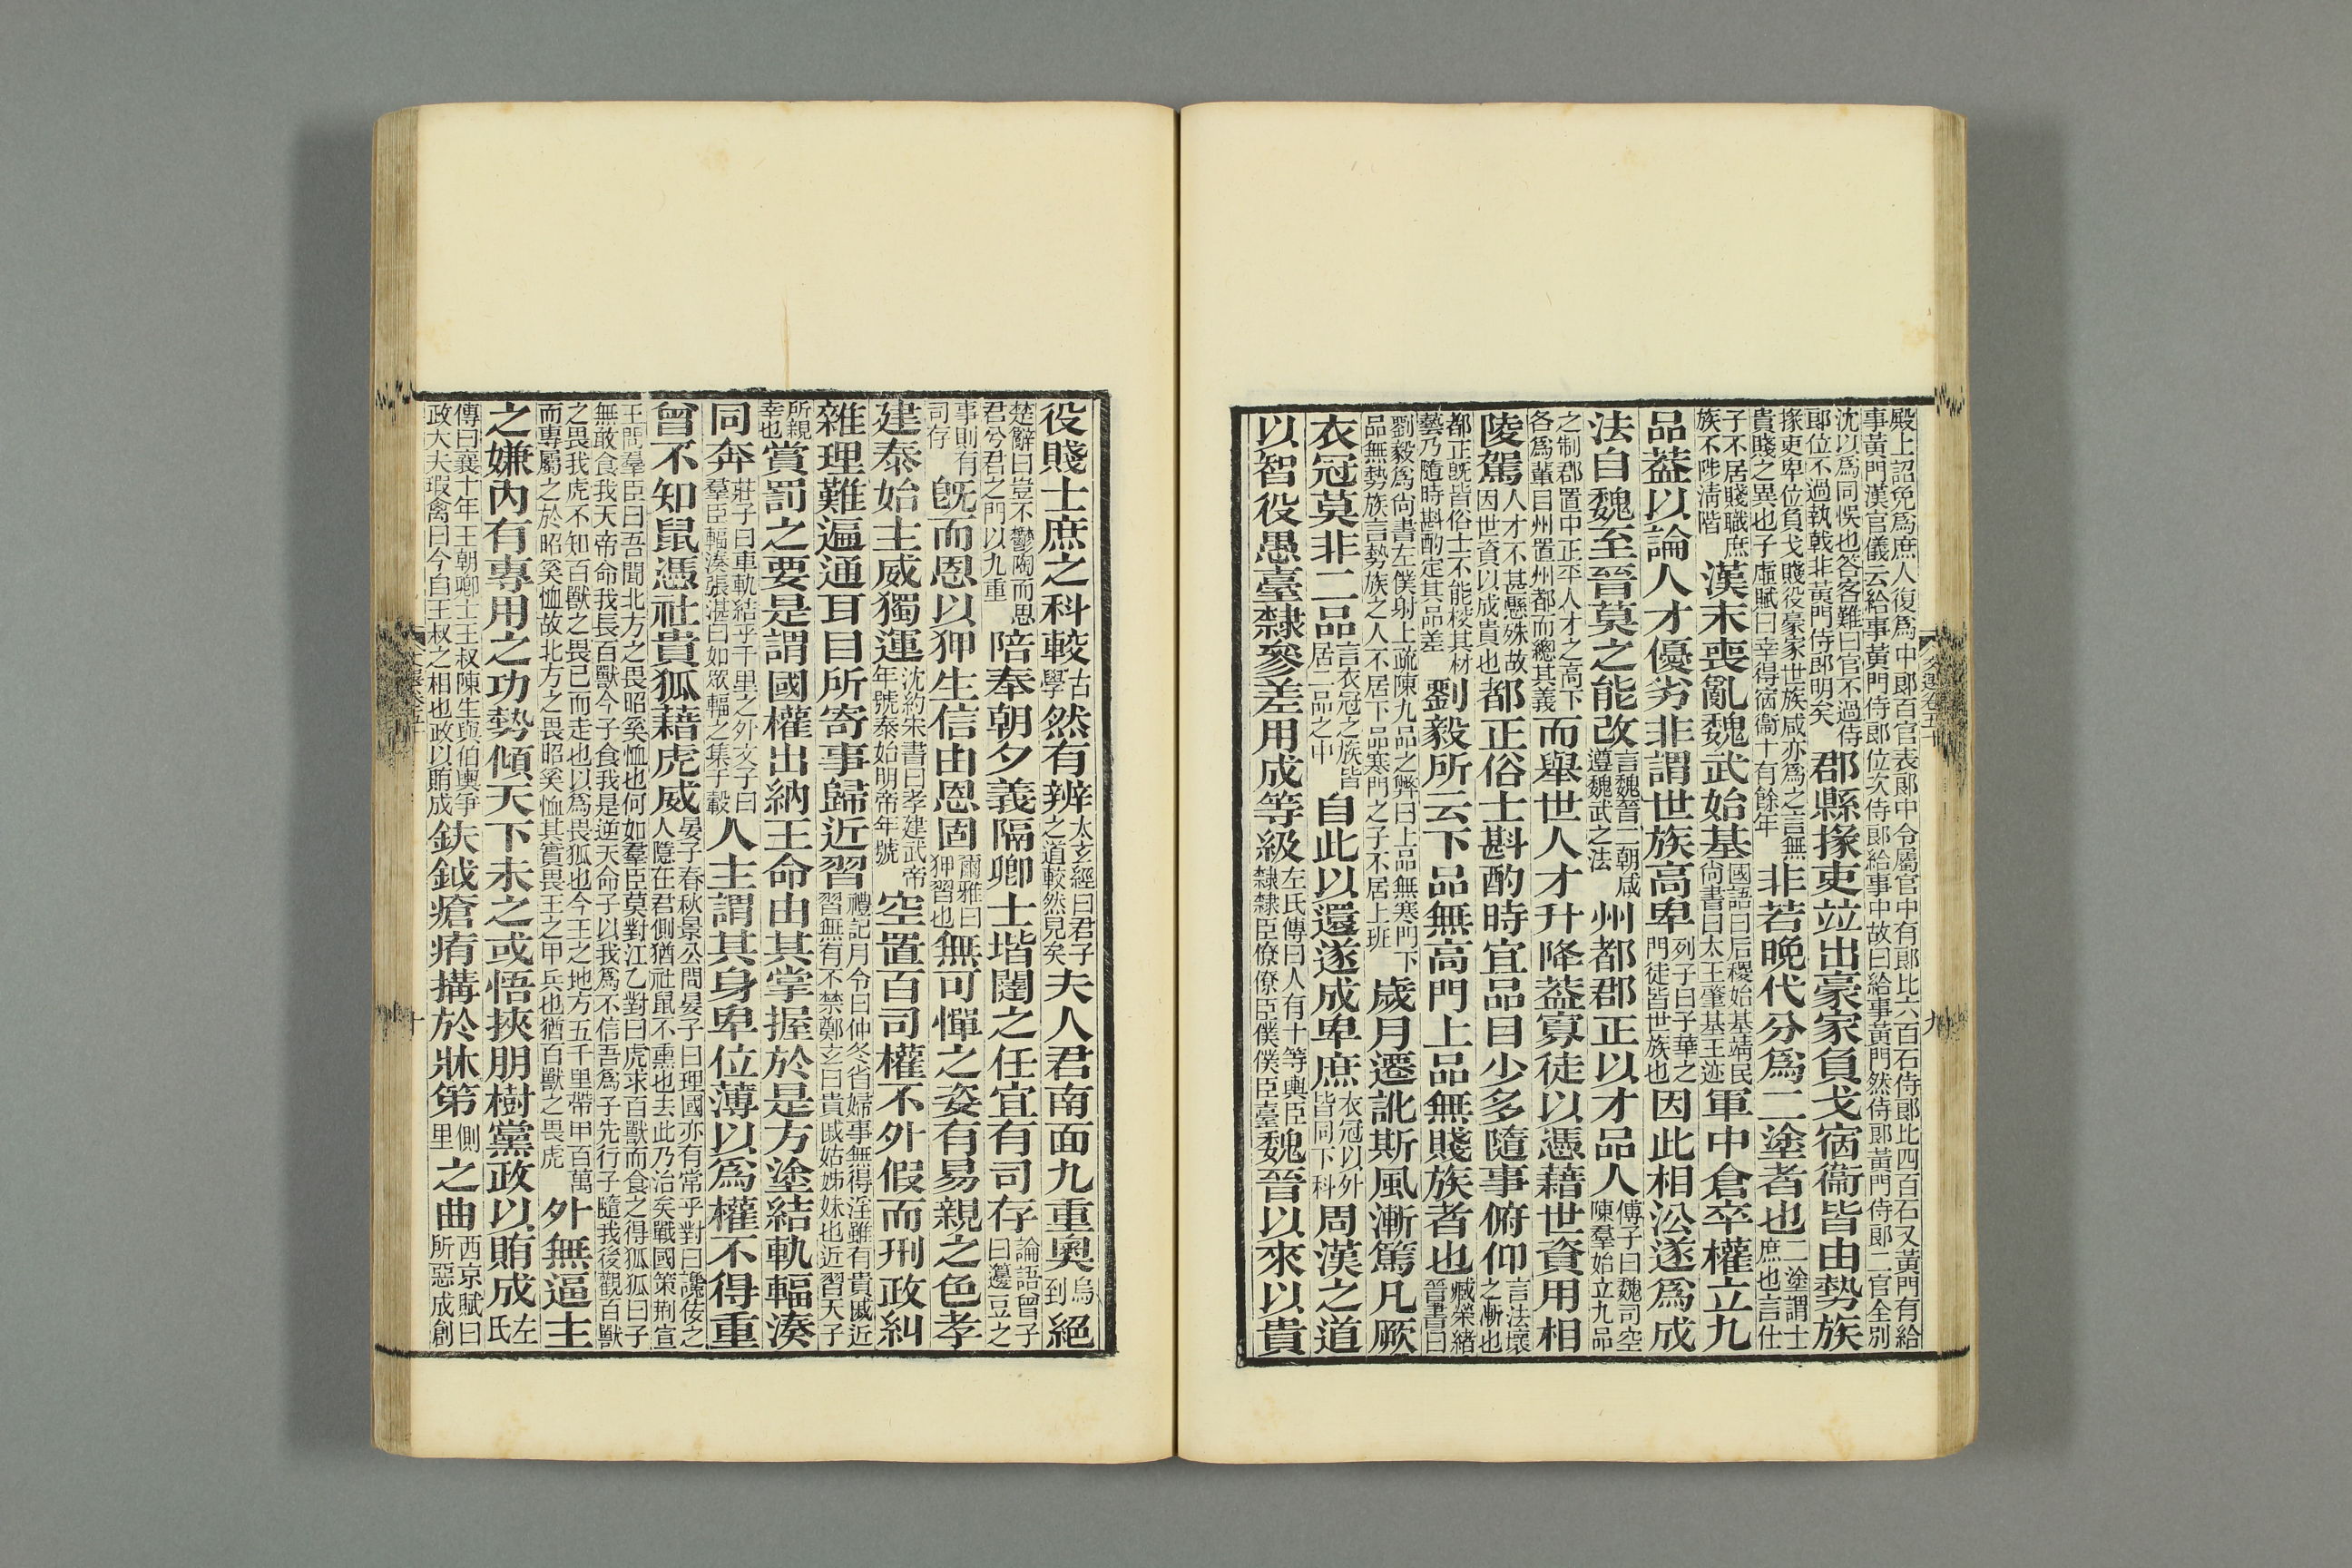 殿上詔免爲庶人復爲中郞百官表郞中令屬官中有郞比六百石侍郞比四百石又黃門有給
事黃門漢官儀云給事黃門侍郞位次侍郞給事中故曰給事黃門然侍郞黃門侍郞二官全別
沈以爲同悞也答客難曰官不過侍郞位不過執戟非黃門侍郞明矣郡縣掾吏竝出豪家負戈宿衞皆由勢族
掾吏卑位負戈賤役豪家世族咸亦爲之言無貴賤之異也子虛賦曰幸得宿衞十有餘年非若晚代分爲二塗者也二塗謂士庶也言仕
子不居賤職庶族不陟淸階漢末喪亂魏武始基國語曰后稷始基靖民尚書曰太王肇基王迹軍中倉卒權立九
品葢以論人才優劣非謂世族高卑列子曰子華之門徒皆世族也因此相沿遂爲成
法自魏至晉莫之能改言魏晉二朝咸遵魏武之法州都郡正以才品人傅子曰魏司空陳羣始立九品
之制郡置中正平人才之高下各爲輩目州置州都而總其義而舉世人才升降葢寡徒以憑藉世資用相
陵駕人才不甚懸殊故因世資以成貴也都正俗士斟酌時宜品目少多隨事俯仰言法壞之漸也
都正旣皆俗士不能校其材藝乃隨時斟酌定其品差劉毅所云下品無高門上品無賤族者也臧榮緒晉書曰
劉毅爲尚書左僕射上疏陳九品之弊曰上品無寒門下品無勢族言勢族之人不居下品寒門之子不居上班歲月遷訛斯風漸篤凡厥
衣冠莫非二品言衣冠之族皆居二品之中自此以還遂成卑庶衣冠以外皆同下科周漢之道
以智役愚臺隸參差用成等級左氏傳曰人有十等輿臣隸隸臣僚僚臣僕僕臣臺魏晉以來以貴
役賤士庶之科較古學然有辨太玄經曰君子之道較然見矣夫人君南面九重奧烏到絕
楚辭曰豈不鬱陶而思君兮君之門以九重陪奉朝夕義隔卿士堦闥之任宜有司存論語曾子曰籩豆之
事則有司存旣而恩以狎生信由恩固爾雅曰狎習也無可憚之姿有易親之色孝
建泰始主威獨運沈約宋書曰孝建武帝年號泰始明帝年號空置百司權不外假而刑政糾
雜理難遍通耳目所寄事歸近習禮記月令曰仲冬省婦事無得淫雖有貴戚近習無有不禁鄭玄曰貴戚姑姊妹也近習天子
所親幸也賞罰之要是謂國權出納王命由其掌握於是方塗結軌輻湊
同奔莊子曰車軌結乎千里之外文子曰羣臣輻湊張湛曰如衆輻之集于轂人主謂其身卑位薄以爲權不得重
曾不知鼠憑社貴狐藉虎威晏子春秋景公問晏子曰理國亦有常乎對曰讒佞之人隱在君側猶社鼠不熏也去此乃治矣戰國策荆宣
王問羣臣曰吾聞北方之畏昭奚恤也何如羣臣莫對江乙對曰虎求百獸而食之得狐狐曰子
無敢食我天帝命我長百獸今子食我是逆天命子以我爲不信吾爲子先行子隨我後觀百獸
之畏我虎不知百獸之畏已而走也以爲畏狐也今王之地方五千里帶甲百萬而專屬之於昭奚恤故北方之畏昭奚恤其實畏王之甲兵也猶百獸之畏虎外無逼主
之嫌內有專用之功勢傾天下未之或悟挾朋樹黨政以賄成左氏
傳曰襄十年王朝卿士王叔陳生與伯輿爭政大夫瑕禽曰今自王叔之相也政以賄成鈇鉞瘡痏搆於牀第側里之曲西京賦曰所惡成創
文選卷五十
九
文選卷五十
十